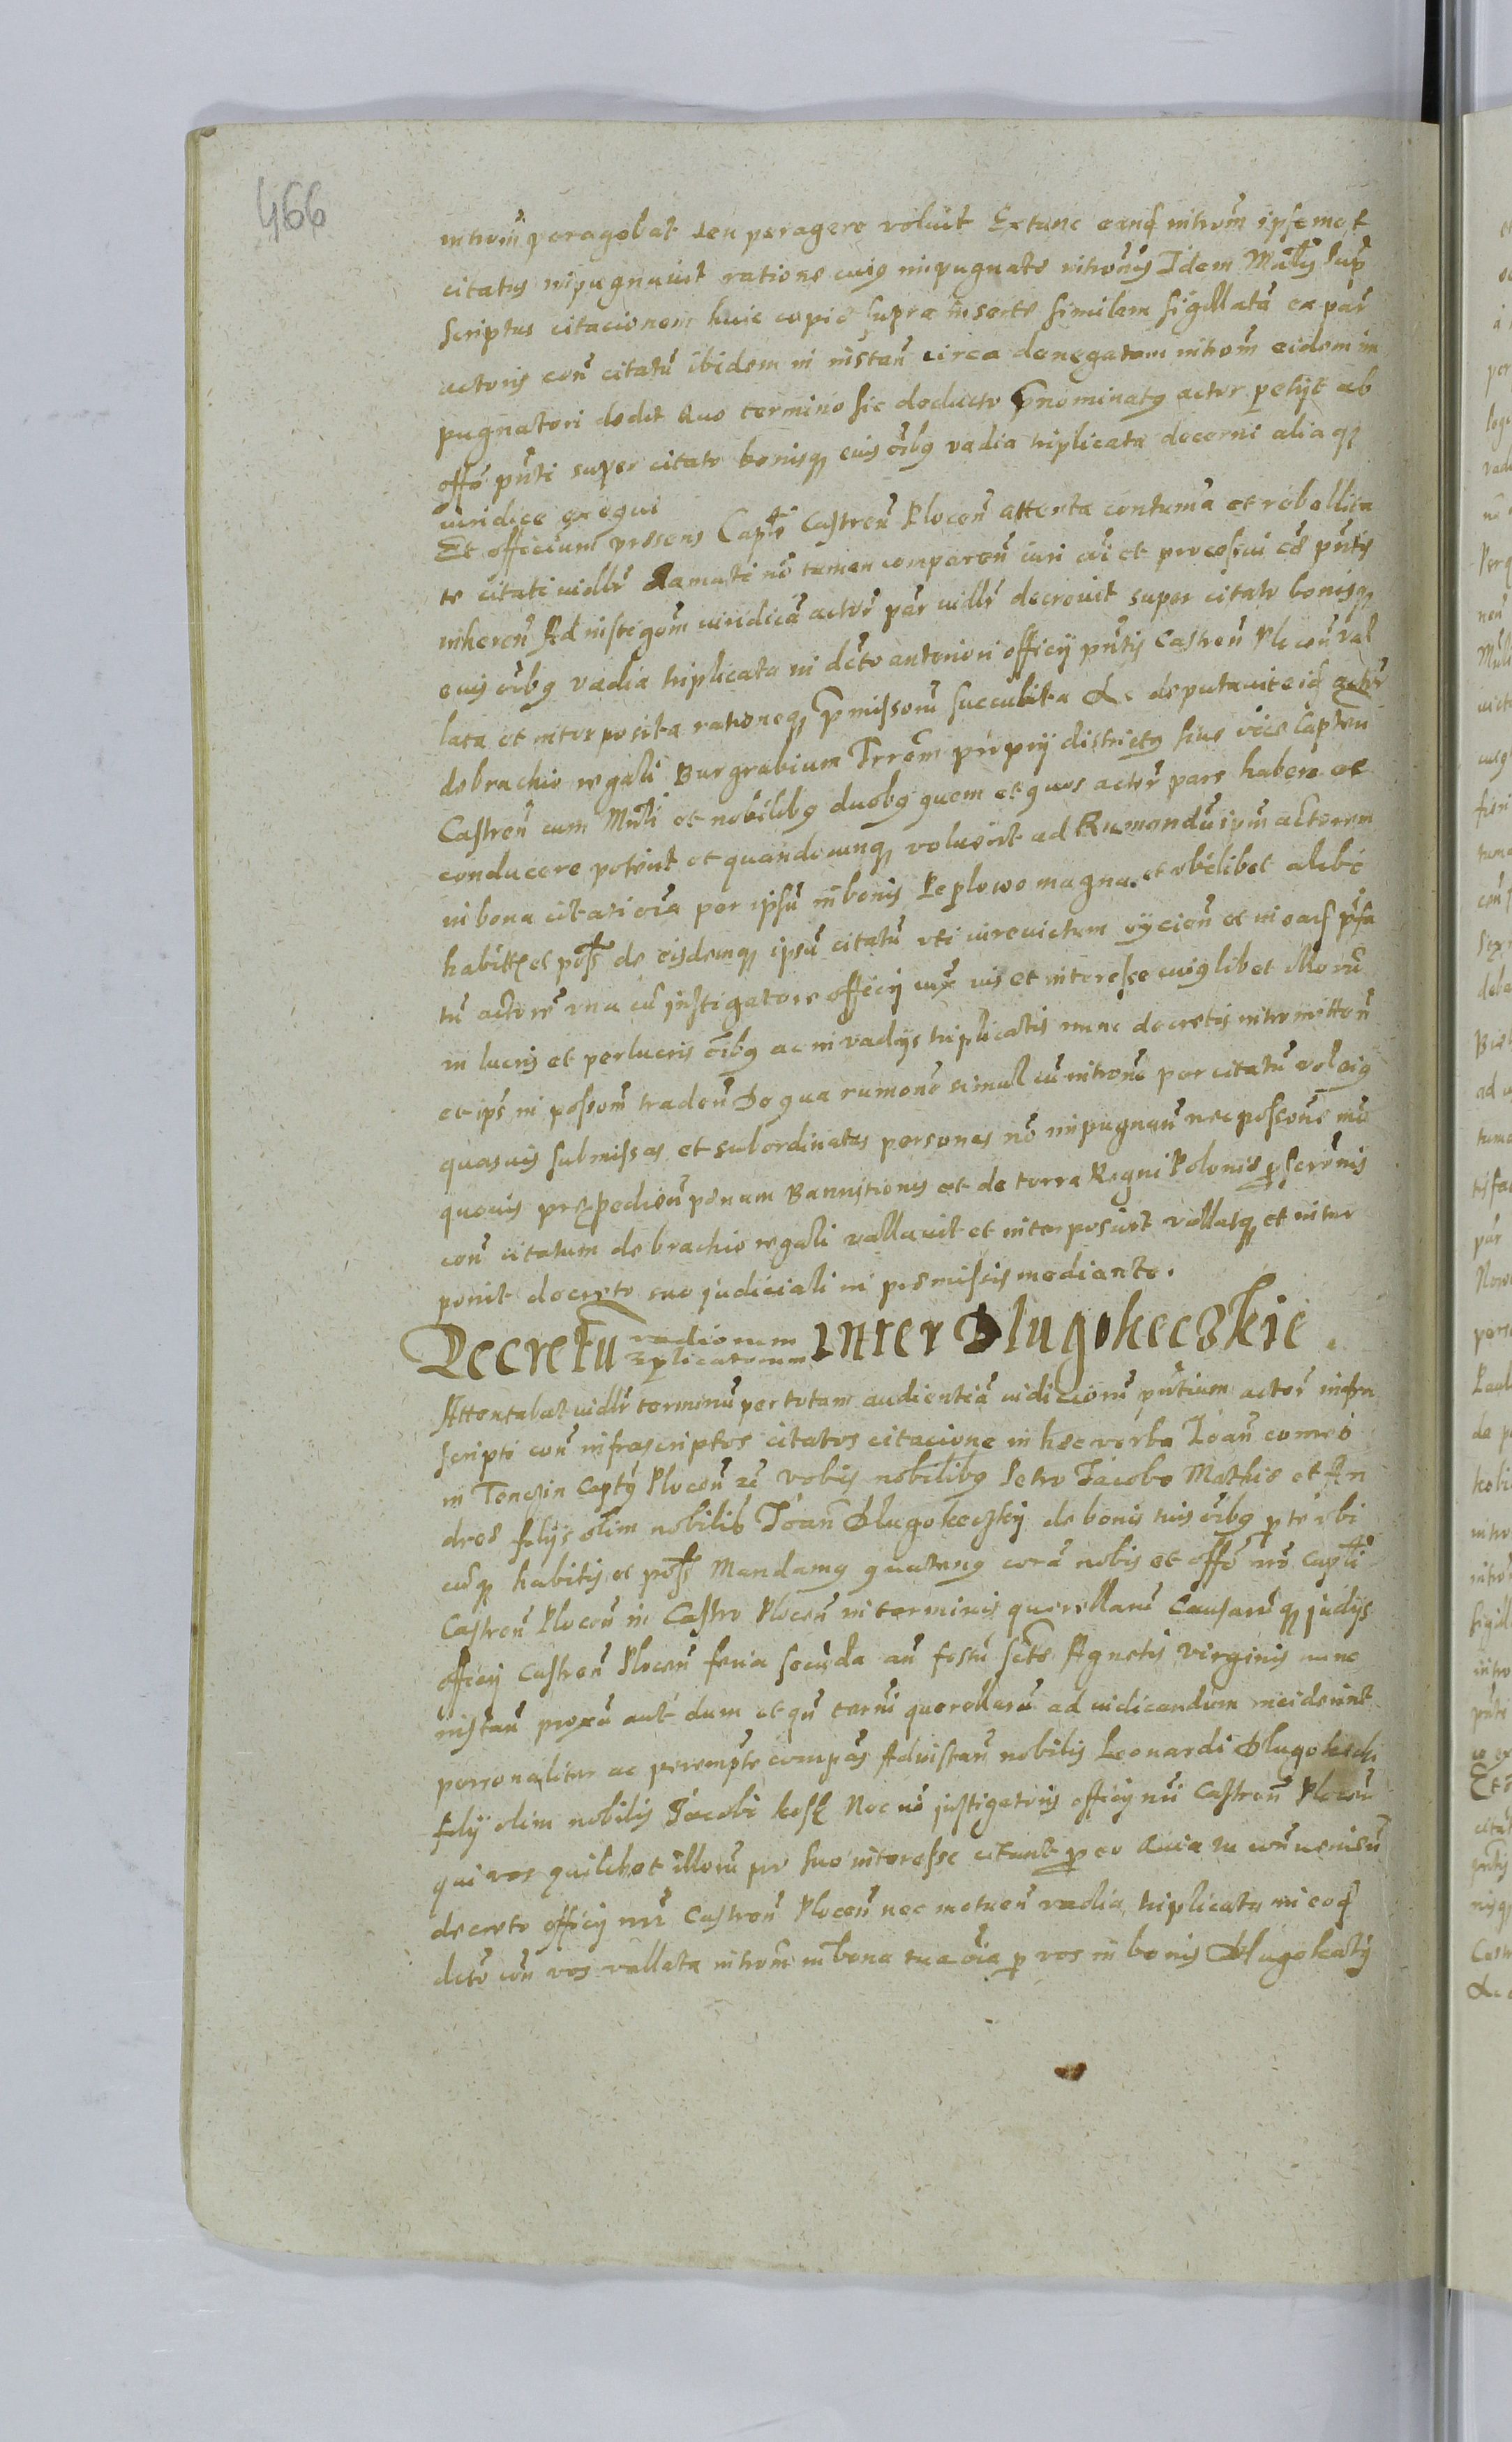 466
introm̃ peragebat seu peragere voluit Extunc eanđ introm̃ ipsemet
citatus impugnavit ratione cuiq impugnate introñis Idem Mãtis sup
scriptus citacionem huic copie supra inserte similem sigillatã ex par
actoris con̄ citatũ ibidem in instan̄ circa denegatam introm̃ eidem im
pugnatori dedit Quo termino sic deducto p̃nominatq actor petijt ab
offõ pñti super citato bonisq eius oĩbq vadia triplicata decerni aliaq
iuridice exequi
Et officium presens Capłi Castren̄ Plocen̄ attenta contumã et rebellita
te citati vidłr clamati nõ tamen comparen̄ iuri cõi et processui cõe pñtis
inheren̄ Ad instigõm iuridicã actor̃ par̃ vidłr decrevit super citato bonisq
eius oĩbq vadia triplicata in dẽto anteriori officij pñtis Castren̄ Plocen̄ val
lata et interposita rationeq p̃missorũ succubita Ac deputavit eiđ actor̃
de brachio regali Burgrabium Trrem̃ proprij districtq sive vice Capłeu
Castren̄ cum Mrłi et nobilibq duobq quem et quos actor̃ pars habere et
conducere poterit et quandocunq voluerit ad Rumandũ ipm̃ actorem
in bona citati oĩa per ipsũ in bonis Peplowo magna et ubilibet alibi
habit et poss de eisdemq ipsũ citatũ uti iurevictum eijcien̄ et in ears pf̃a
tũ actorẽ una cũ instigatore officij iux ius et interesse cuiqlibet illorũ
in lucris et perlucris oĩbq ac in vadijs triplicatis nunc decretis intromitten̄
et ip̃s in possom̃ traden̄ De qua rumone simul cũ introñe per citatũ vel eiq
quasvis submissas et subordinatas personas nõ impugnan̄ nec possone mõ
quovis prepedien̄ penam Bannitionis et de terra Regni Polonie p̃scrõnis
con̄ citatum de brachio regali vallavit et interposuit vallatq et inter
ponit decreto suo judiciali in premissis mediante.
Decretũ vadiorum triplicatorum inter Dlugokeczkie.
Attentabat vidłr terminũ per totam audientiã iudiciorũ pñtium actor̃ infra
scripti con̄ infrascriptos citatos citacione in hec verba Ioan̄ comes
in Tenczin Captq Plocen̄ zc Vobis nobilibq Petro Iacobo Mathie et An
dree filijs olim nobilis Ioan̄ Dlugokeczky de bonis tuis oĩbq p̃ter ubi
cũq habitis et poss Mandamq quatenq corã nobis et offõ nrõ Capłi
Castren̄ Plocen̄ in Castro Plocen̄ in terminis querellarũ Causarũq judijs
officij Castren̄ Plocen̄ feria secũda an̄ festũ scte Agnetis virginis nunc
instan̄ proxũ aut dum et qñ termĩ querellarũ ad iudicandum inciderint
personaliter ac perempte compãs Ad instan̄ nobilis Leonardi Dlugokeck
filij olim nobilis Iacobi Nec nõ instigatoris officij nrĩ Castren̄ Plocen̄
qui vos quilibet illorũ pro suo interesse citant p eo Quia tu con̄venisũ
decreto officij nrĩ Castren̄ Plocen̄ nec metuen̄ vadia triplicata in eođ
dcto con̄ vos vallata introm̃ in bona tua oĩa p vos in bonis Dlugokąty